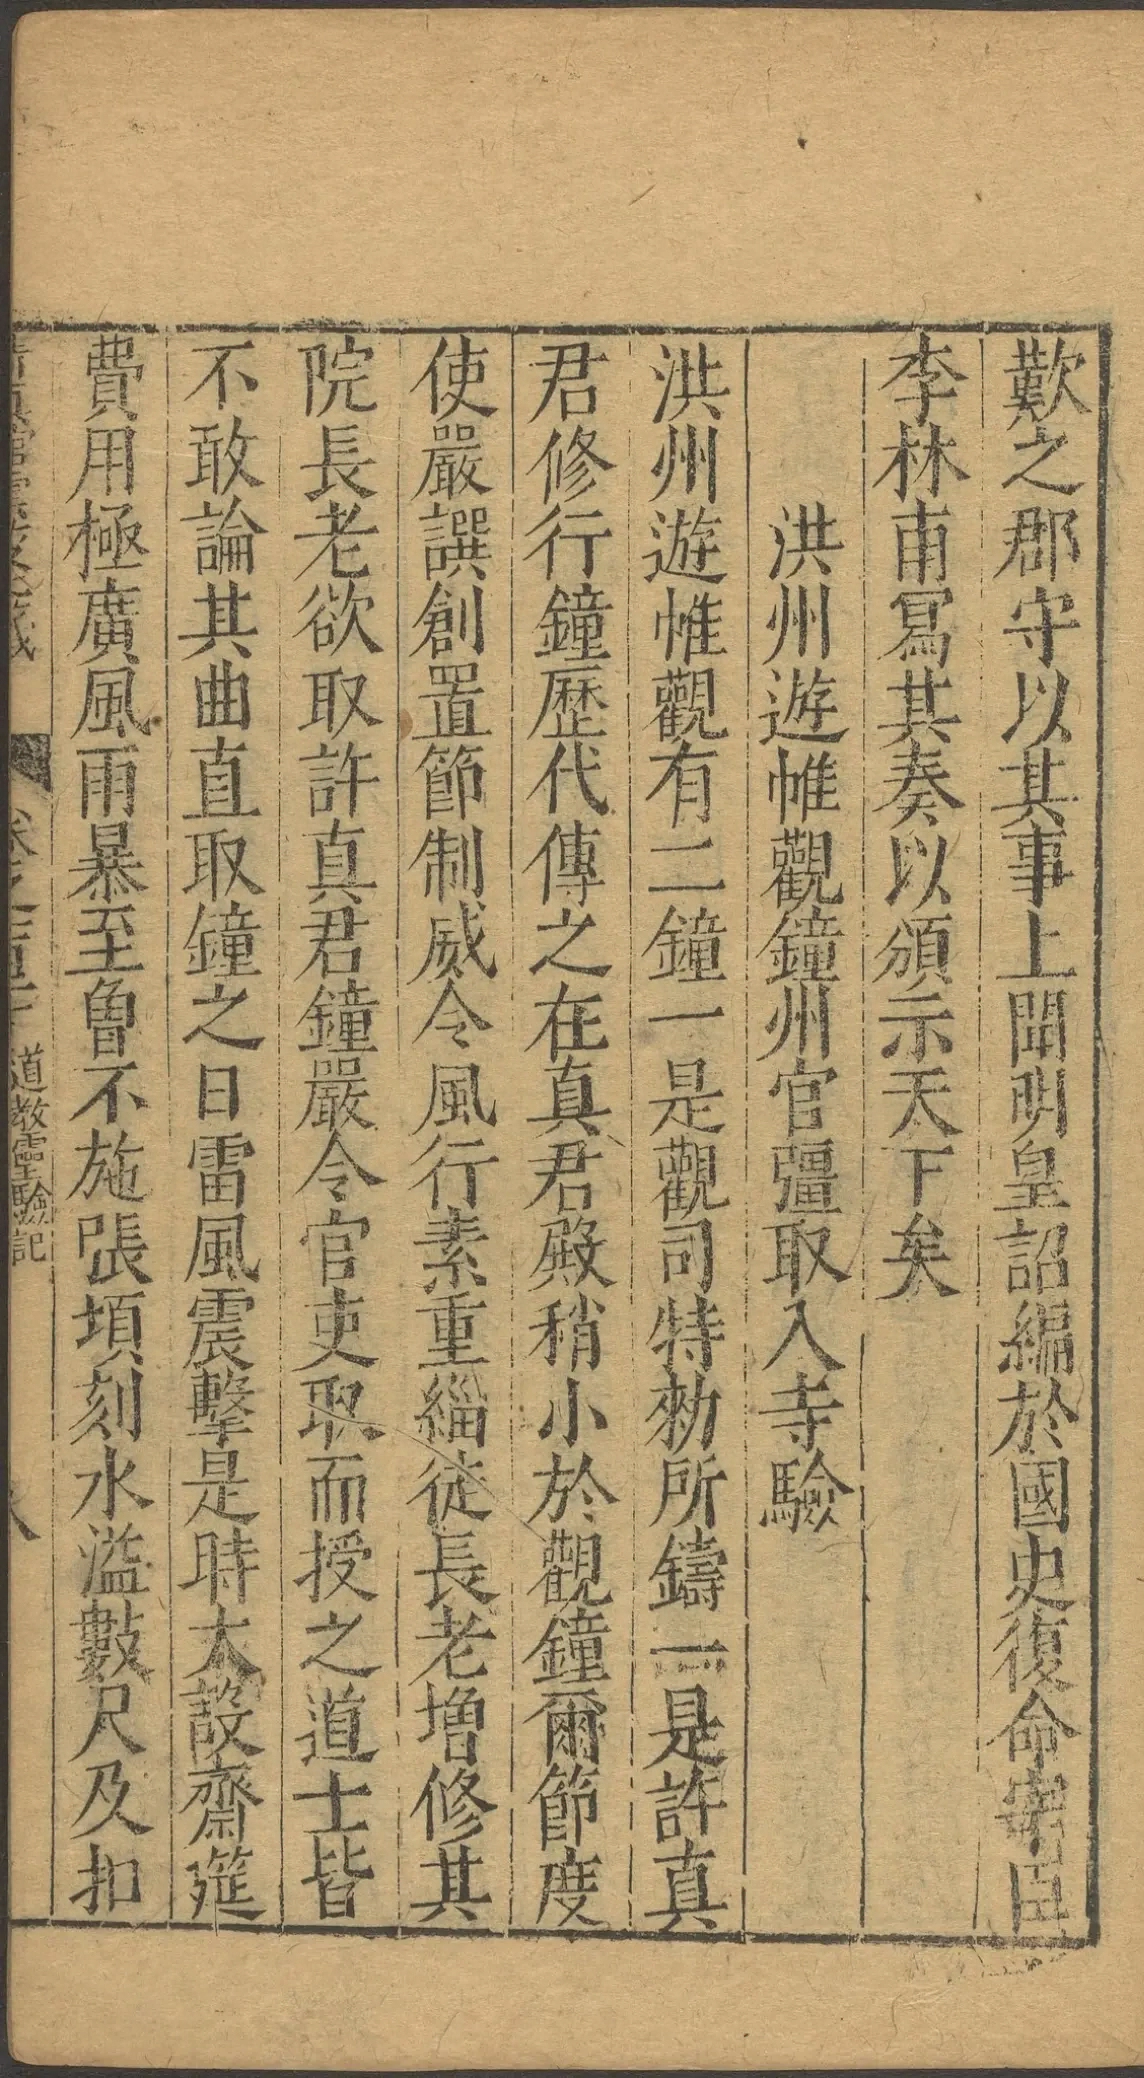 歎之郡守以其事上聞明皇詔編於國史復命宰臣
李林甫冩其奏以頒示天下矣
洪州遊帷觀鐘州官彊取入寺驗
洪州遊帷觀有二鐘一是觀司特勑所鑄一是許真
君修行鐘歷代傳之在真君殿稍小於觀鐘爾節度
使嚴譔創置節制威令風行素重緇徒長老增修其
院長老欲取許真君鐘嚴令官吏取而授之道士皆
不敢論其曲直取鐘之日雷風震擊是時大設齋筵
費用極廣風雨暴至魯不施張頃刻水溢數尺及扣
道教靈驗記